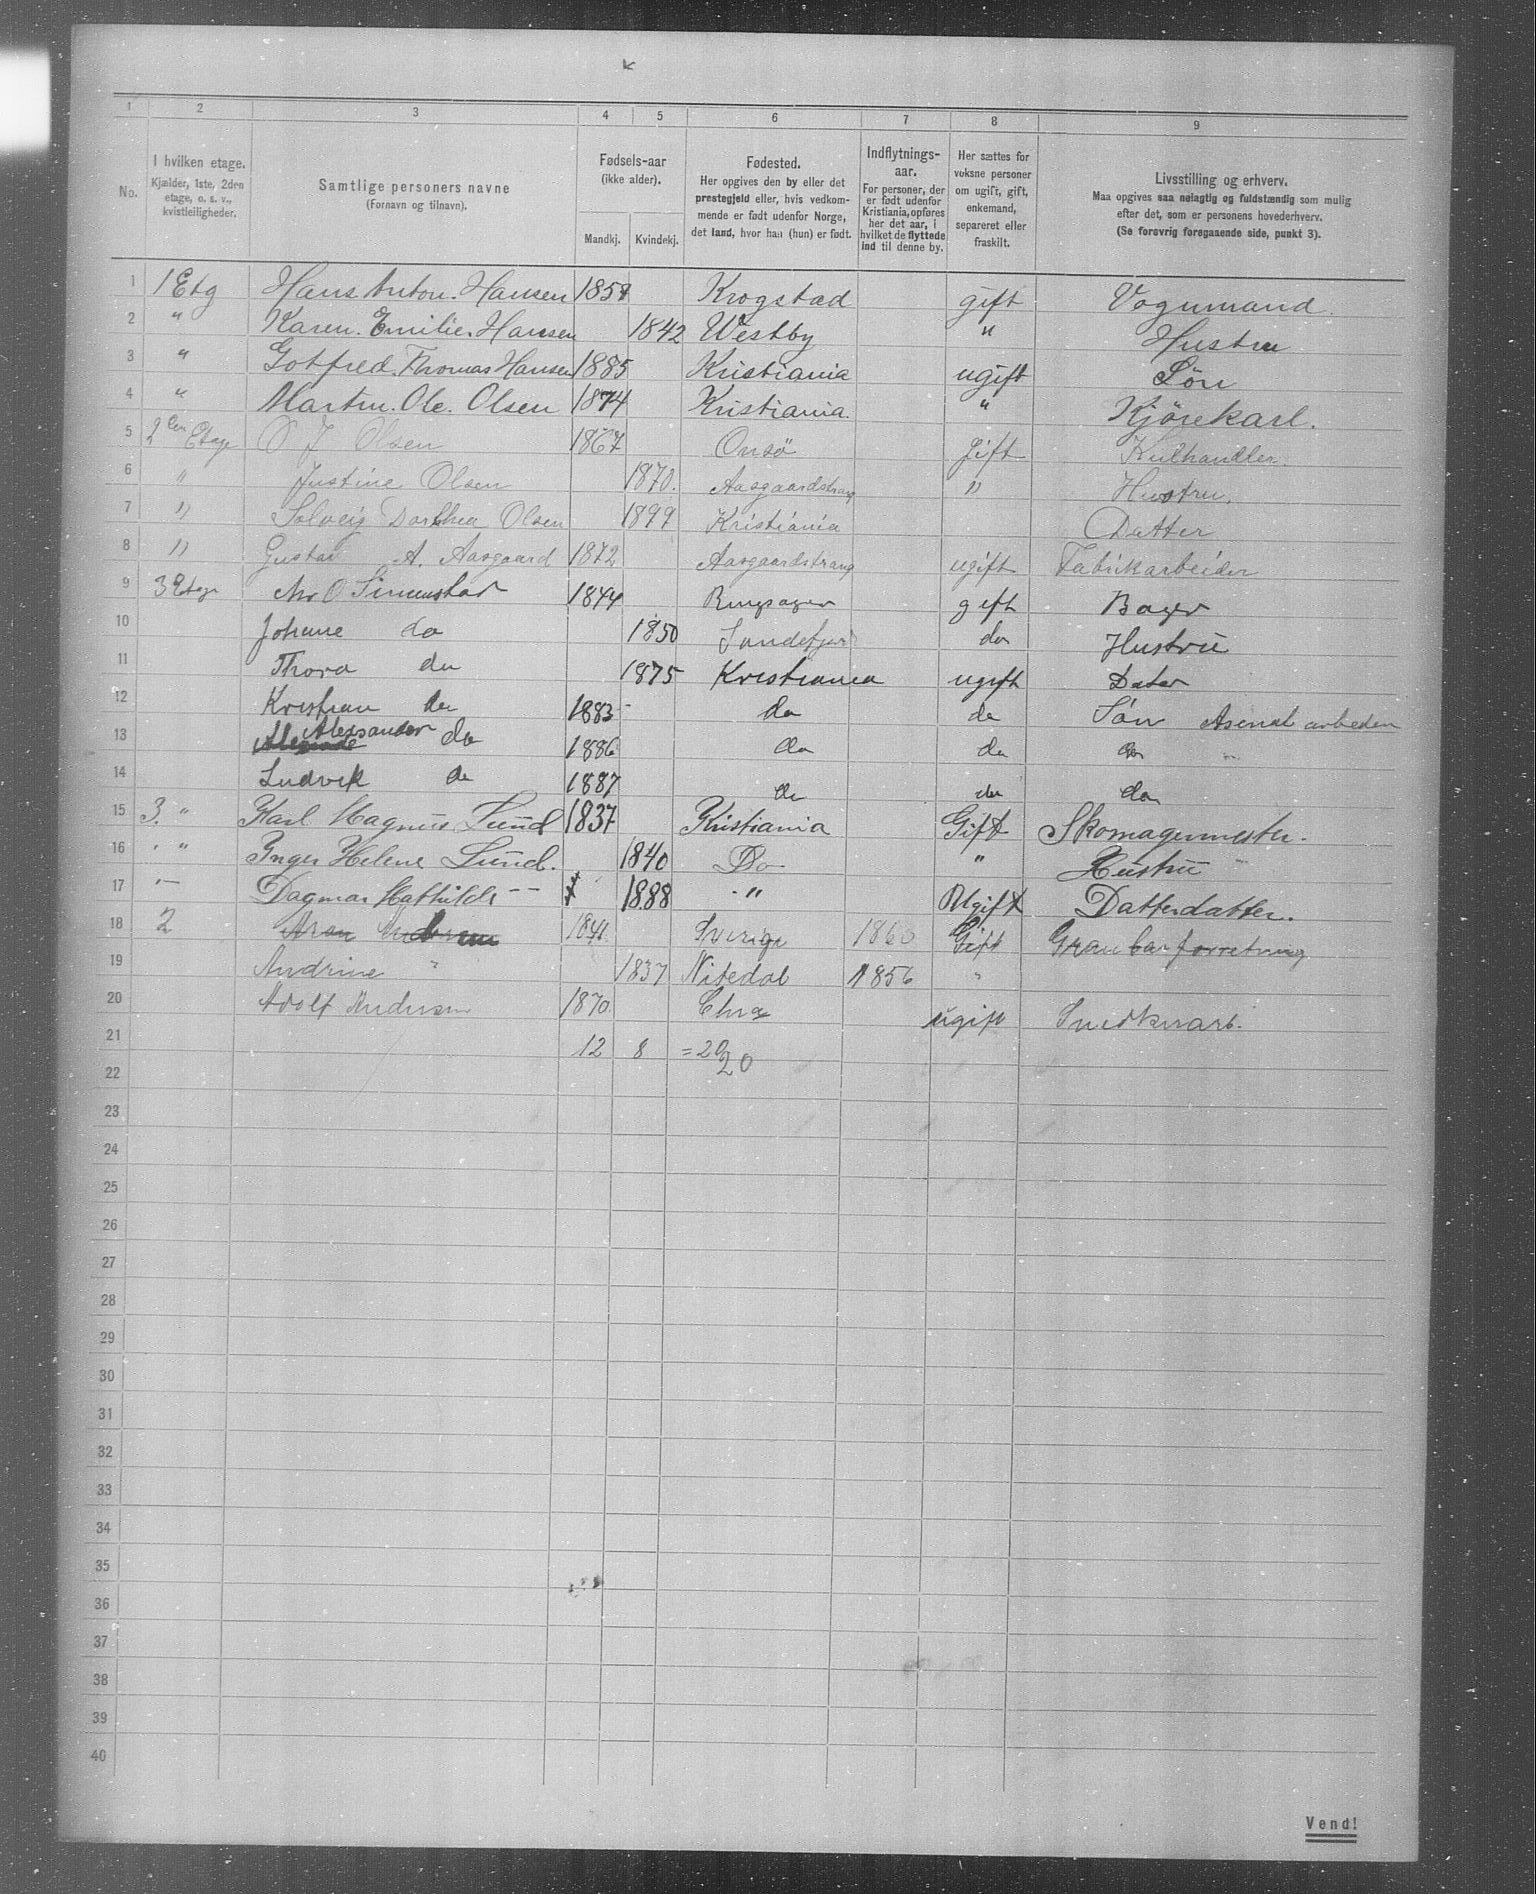 1 2 3 4 5 6 7 8 9
No.
I hvilken etage.
Kjælder, 1ste, 2den
etage, o. s. v.,
kvistleiligheder.
Samtlige personers navne
(Fornavn og tilnavn).
Fødsels-aar
(ikke alder).
Mandkj. Kvindekj.
Fødested.
Her opgives den by eller det
prestegjeld eller, hvis vedkom-
mende er født udenfor Norge,
det land, hvor han (hun) er født.
Indflytnings-
aar.
For personer, der
er født udenfor
Kristiania, opføres
her det aar, i
hvilket de flyttede
ind til denne by.
Her sættes for
voksne personer
om ugift, gift,
enkemand,
separeret eller
fraskilt.
Livsstilling og erhverv.
Maa opgives saa nøiagtig og fuldstændig som mulig
efter det, som er personens hovederhverv.
(Se forøvrig foregaaende side, punkt 3).
1 1 Etg Hans Anton. Hansen 1857 Krogstad gift Vognmand.
2 " Karen. Emilie. Hansen 1842 Westby " Hustru
3 " Gotfred. Thomas Hansen 1885 Kristiania ugift Sön
4 " Martin. Ole. Olsen 1874 Kristiania. " Kjörekarl.
5 2den Etage O J Olsen 1867 Onsö gift Kulhandler.
6 " Justine Olsen 1870. Aasgaardstrang " Hustru,
7 " Solveig Dorthea Olsen 1899 Kristiania Datter
8 " Gustav A. Aasgaard 1872 Aasgaardstrang ugift Fabrikarbeider
9 3 Etage O Simenstad 1844 Ringsager gift Bager
10 Johane do 1850 Sandefjord do Hustru
11 Thora do 1875 Kristiania ugift Dater
12 Kristian do 1883 do do Sön Asenal arbeden
13 Alexsander do 1886 do do do "
14 Ludvik do 1887 do do do
15 3. " Karl Magnus Lund 1837 Kristiania Gift Skomagermester.
16 " " Inger Helene Lund. 1840 Do " Hustru "
17 " Dagmar Mathilde - - 1888 - " Ugift Datterdatter.
18 2 Aron Andersen 1841 Sverige 1860 Gift Granbarforretning
19 Andrine " 1837 Nitedal 1856 "
20 Adolf Andersen 1870. Chra ugift Snedkerarb.
21 12 8 = 20
22 20
23
24
25
26
27
28
29
30
31
32
33
34
35
36
37
38
39
40
Vend!